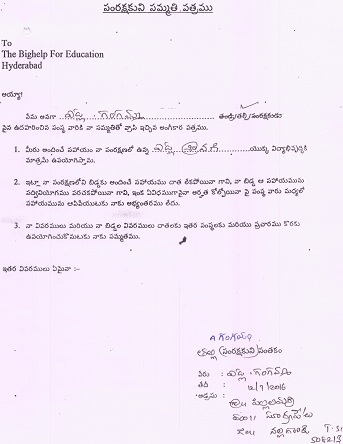 సంరక్షకుని సమ్మతి పత్రము
To
The Bighelp For Education
Hyderabad
అయ్యా!
నేను అనగా ఎడ్ల గంగమ్మ తండ్రి/తల్లి/సంరక్షకుడు
పైన ఉదహరించిన సంస్థ వారికి నా సమ్మతితో వ్రాసి ఇచ్చిన అంగీకార పత్రము.
1. మీరు అందించే సహాయం నా సంరక్షణలో ఉన్న ఎడ్ల యొక్క విద్యాభివృద్ధికి
మాత్రమే ఉపయోగిస్తాను.
2. ఇట్లా నా సంరక్షణలోని బిడ్డకు అందించే సహాయము చాత శికపోయినా గాని, నా బిడ్డ ఆ సహాయమును
సద్వినియోగము పరచకపోయినా గాని, ఇంక ఏవిధముగానైనా అర్హత కోల్పోయినా పై సంస్థ వారు మధ్యలో
సహాయమును ఆపివేయుటకు నాకు అభ్యంతరము లేదు.
3. నా వివరములు మరియు నా బిడ్డల వివరములు దాతలకు ఇతర సంస్థలకు మరియు ప్రచారము కొరకు
ఉపయోగించుకొనుటకు నాకు సమ్మతము.
ఇతర వివరములు ఏమైనా :-
A గంగమ్మ
తల్లి (సంరక్షకుని) సంతకం
పేరు : ఎడ్ల గంగమ్మ
తేదీ : 12/9/2016
అడ్రసు :
జిలా నల్లగొండ